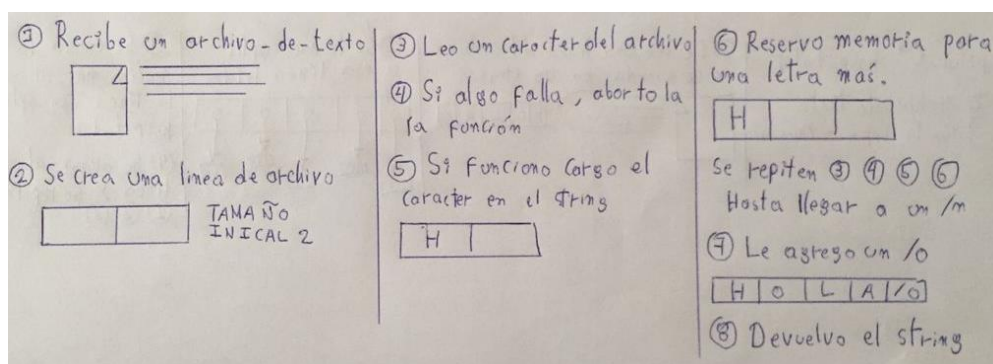 ① Recibe un archivo-de-texto
② Se crea una linea de archivo
TAMAÑO
INICAL 2
③ Leo un caracter del archivo
④ Si algo falla, aborto la
la función
⑤ Si funciono cargo el
caracter en el string
H
⑥ Reservo memoria para
una letra maś.
H
Se repiten ③ ④ ⑤ ⑥
Hasta llegar a un /n
⑦ Le agrego un /0
H O L A /0
⑧ Devuelvo el string